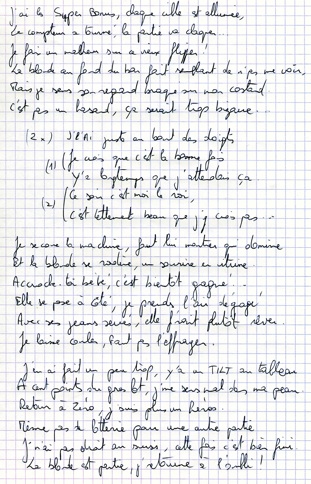 J'ai le Super Bonus, chaque cible est allumée,
Le compteur a tourné, la partie va claquer
Je fais un malheur, on a vieux flipper!
La blonde au fond du bar fait semblant de n'pas me voir,
Mais je sens son regard braqué sur mon costard
C'est pas un hasard, ça serait trop bizarre...
(2x) J'l'ai juste au bout des doigts
(1) (Je crois que c'est la bonne fois
Y'a longtemps que j'attendais ça
(2) (Ce soir c'est moi le roi,
C'est tellement beau que j'y crois pas...
Je secoue la machine, faut lui montrer qui domine
Et la blonde se radine, un sourire en vitrine
Accroche-toi bébé, c'est bientôt gagné...
Elle se pose à côté, je prends l'air dégagé,
Avec ses jeans serrés, elle f'rait plutôt rêver
Je laisse couler, faut pas l'effrayer.
J'en ai fait un peu trop, y'a un TILT au tableau
A cent points du gros lot, j'me sens mal dans ma peau
Retour à Zéro, j'suis plus un héros.
Même pas de loterie pour une autre partie
J'n'ai pas droit au sursis, cette fois c'est bien fini.
La blonde est partie, j'retourne à l'oubli!